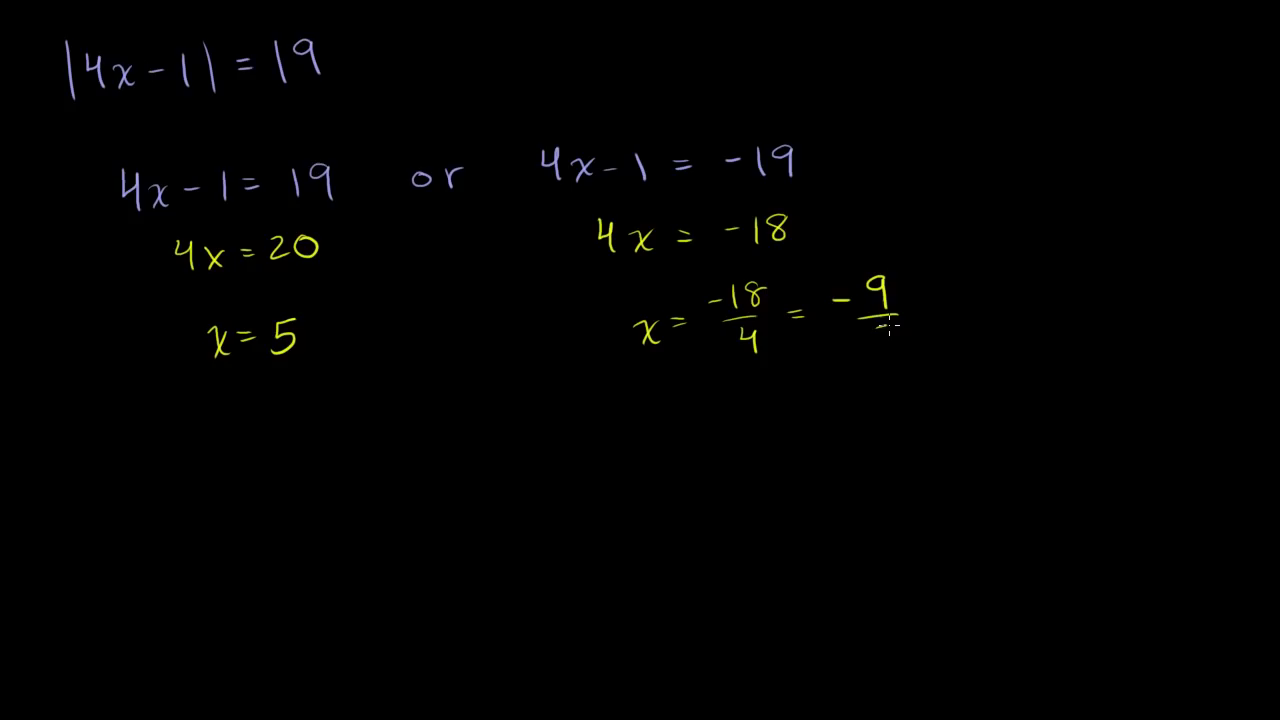 |4x-1| = 19
4x-1 = 19 or 4x-1 = -19
4x = 20 4x = -18
x = 5 x = -18/4 = -9/